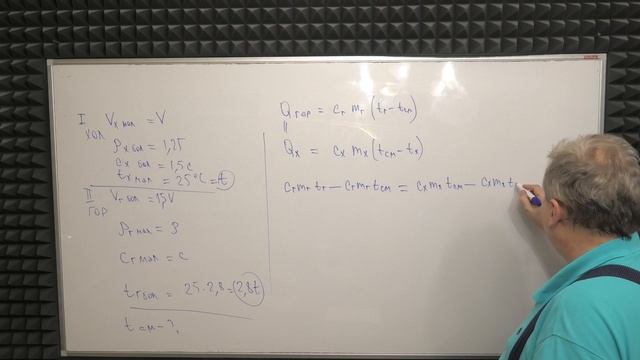 I
V_x мал = V
хол
ρ_x бол = 1,2ρ
c_x бол = 1,5c
t_x мал = 25°C = t
II
V_г бол = 1,5V
гор
ρ_г мал = ρ
c_г мал = c
t_г бол = 25·2,8 = 2,8t
t см - ?
Q гор = c_г m_г (t_г - t_см)
=
Q_x = c_x m_x (t_см - t_x)
c_г m_г t_г - c_г m_г t_см = c_x m_x t_см - c_x m_x t